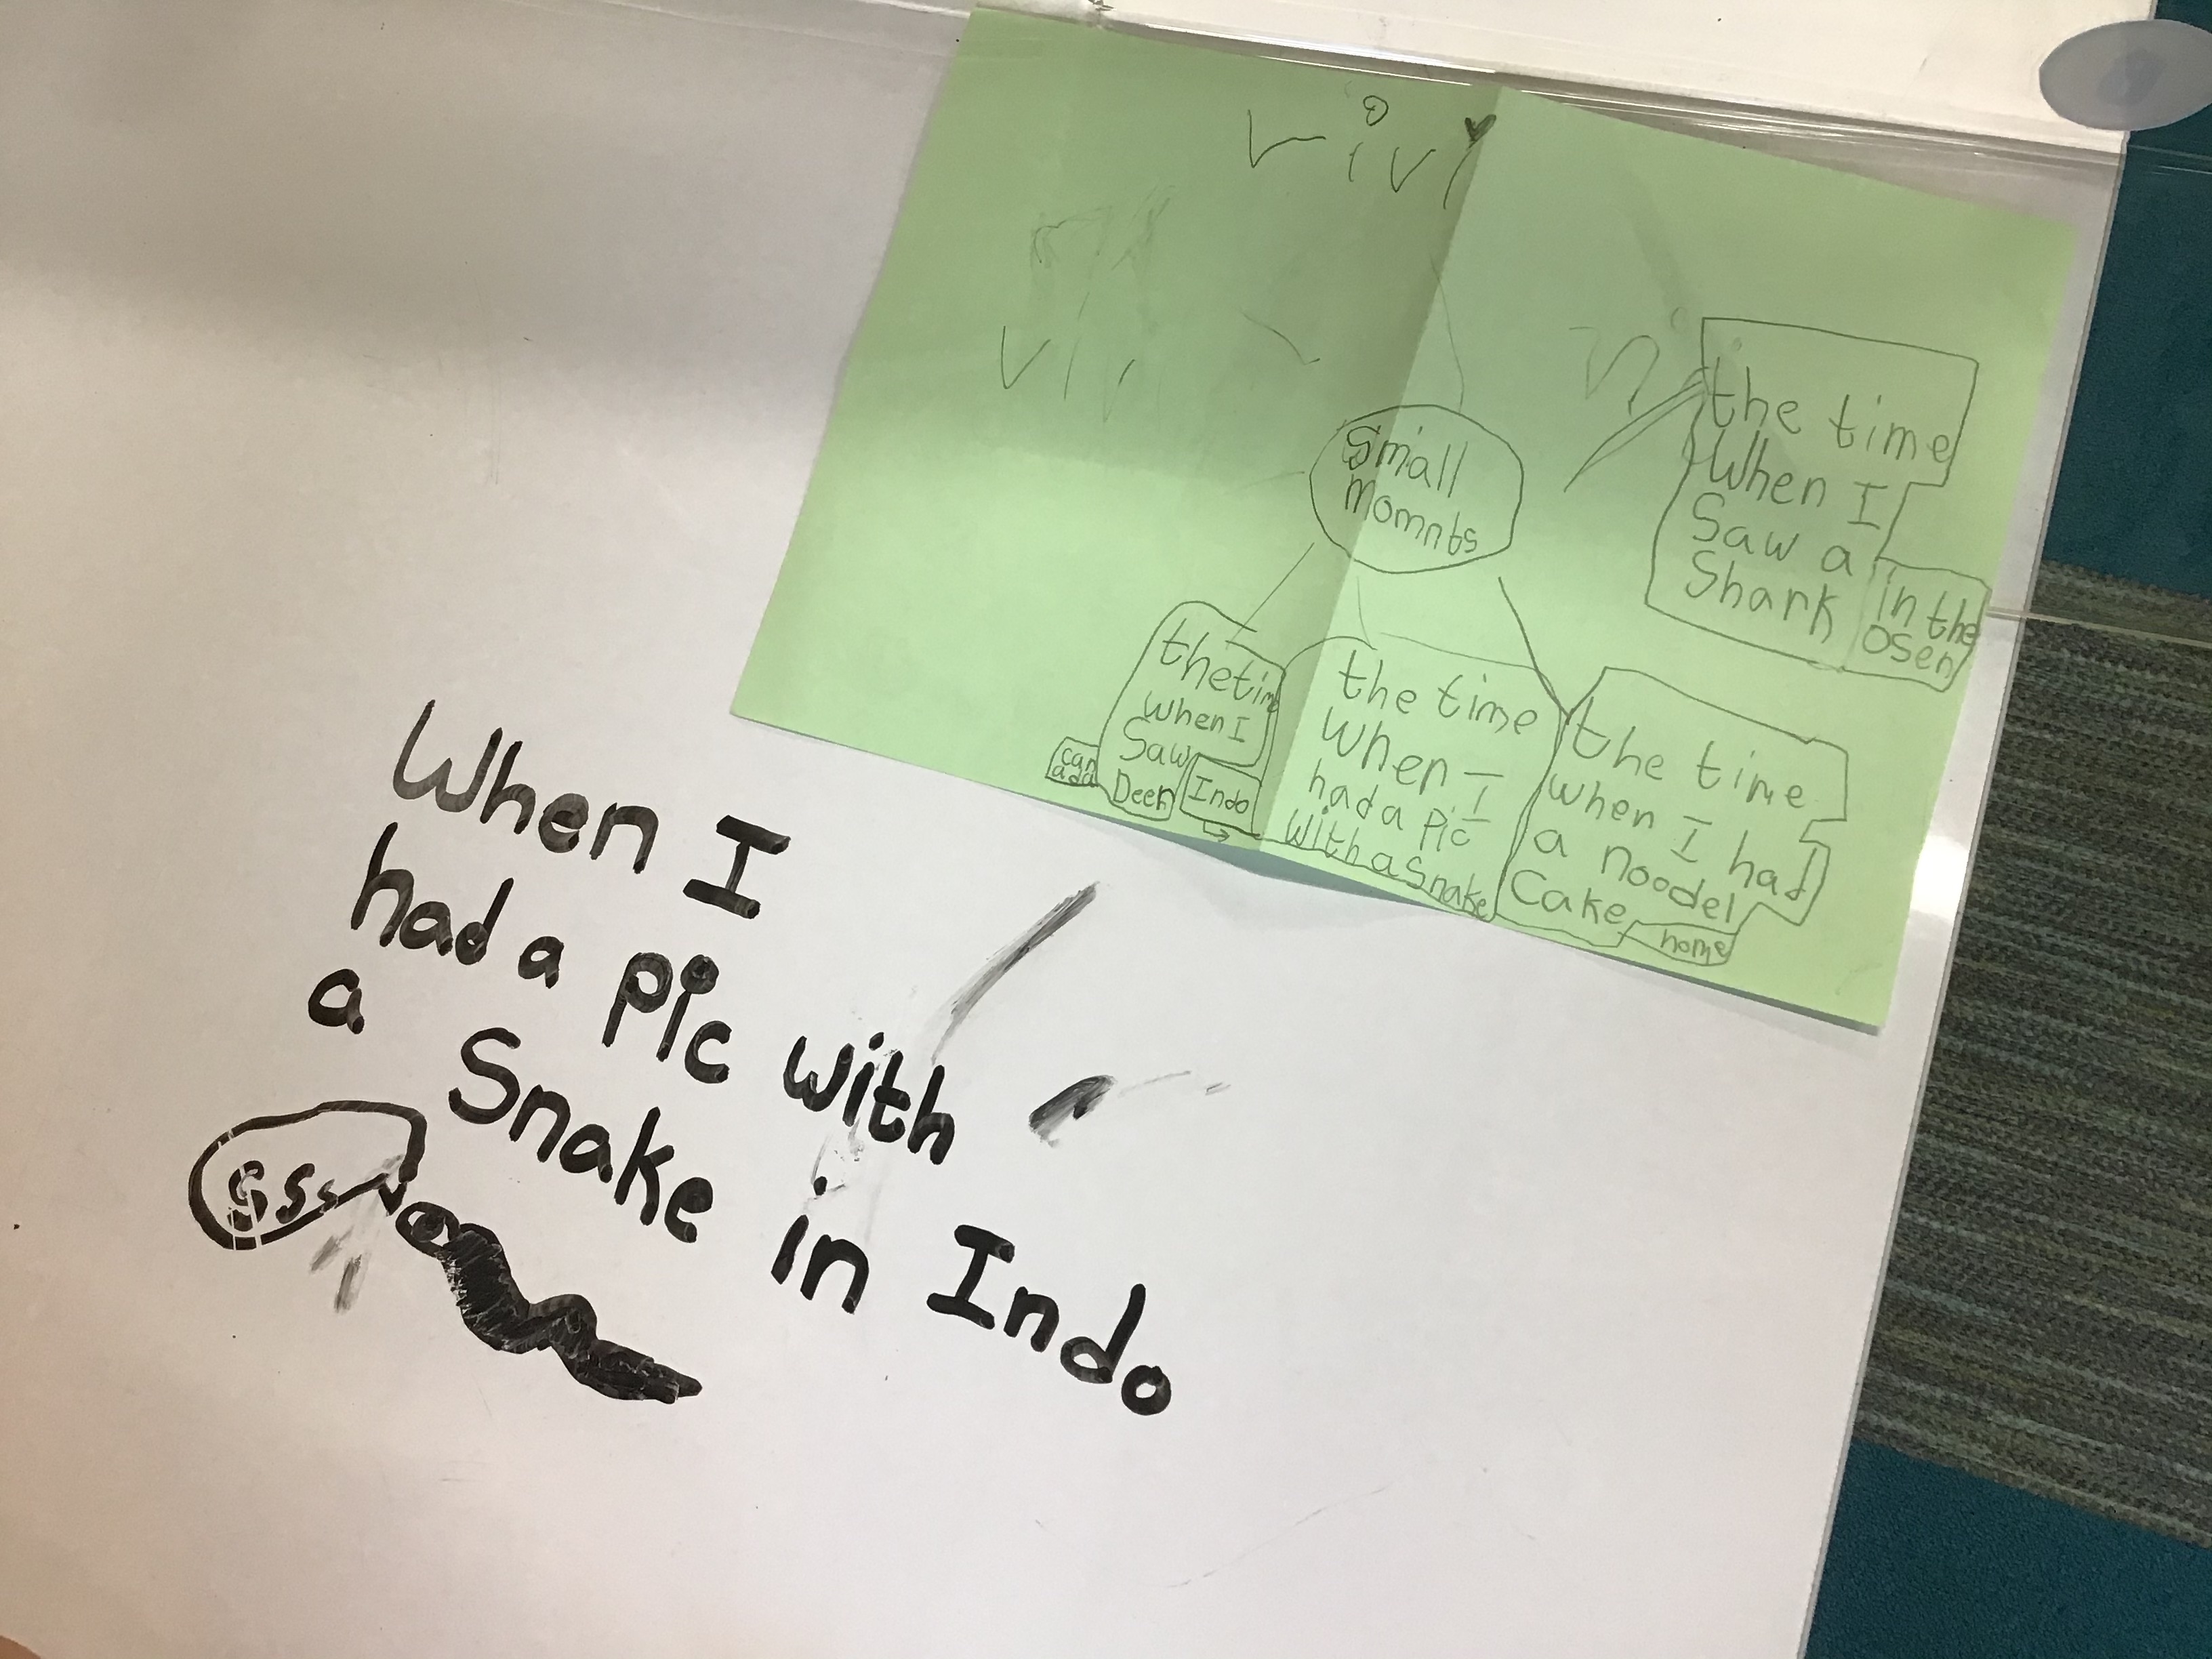 vivi
vivi
Small
momnts
the time
When I
Saw a
Shark
in the
osen
the time
when I
Saw
Deer
can
add
Indo
the time
When I
had a pic
with a Snake
the time
when I had
a noodel
Cake
home
When I
had a pic with
a Snake in Indo
sss